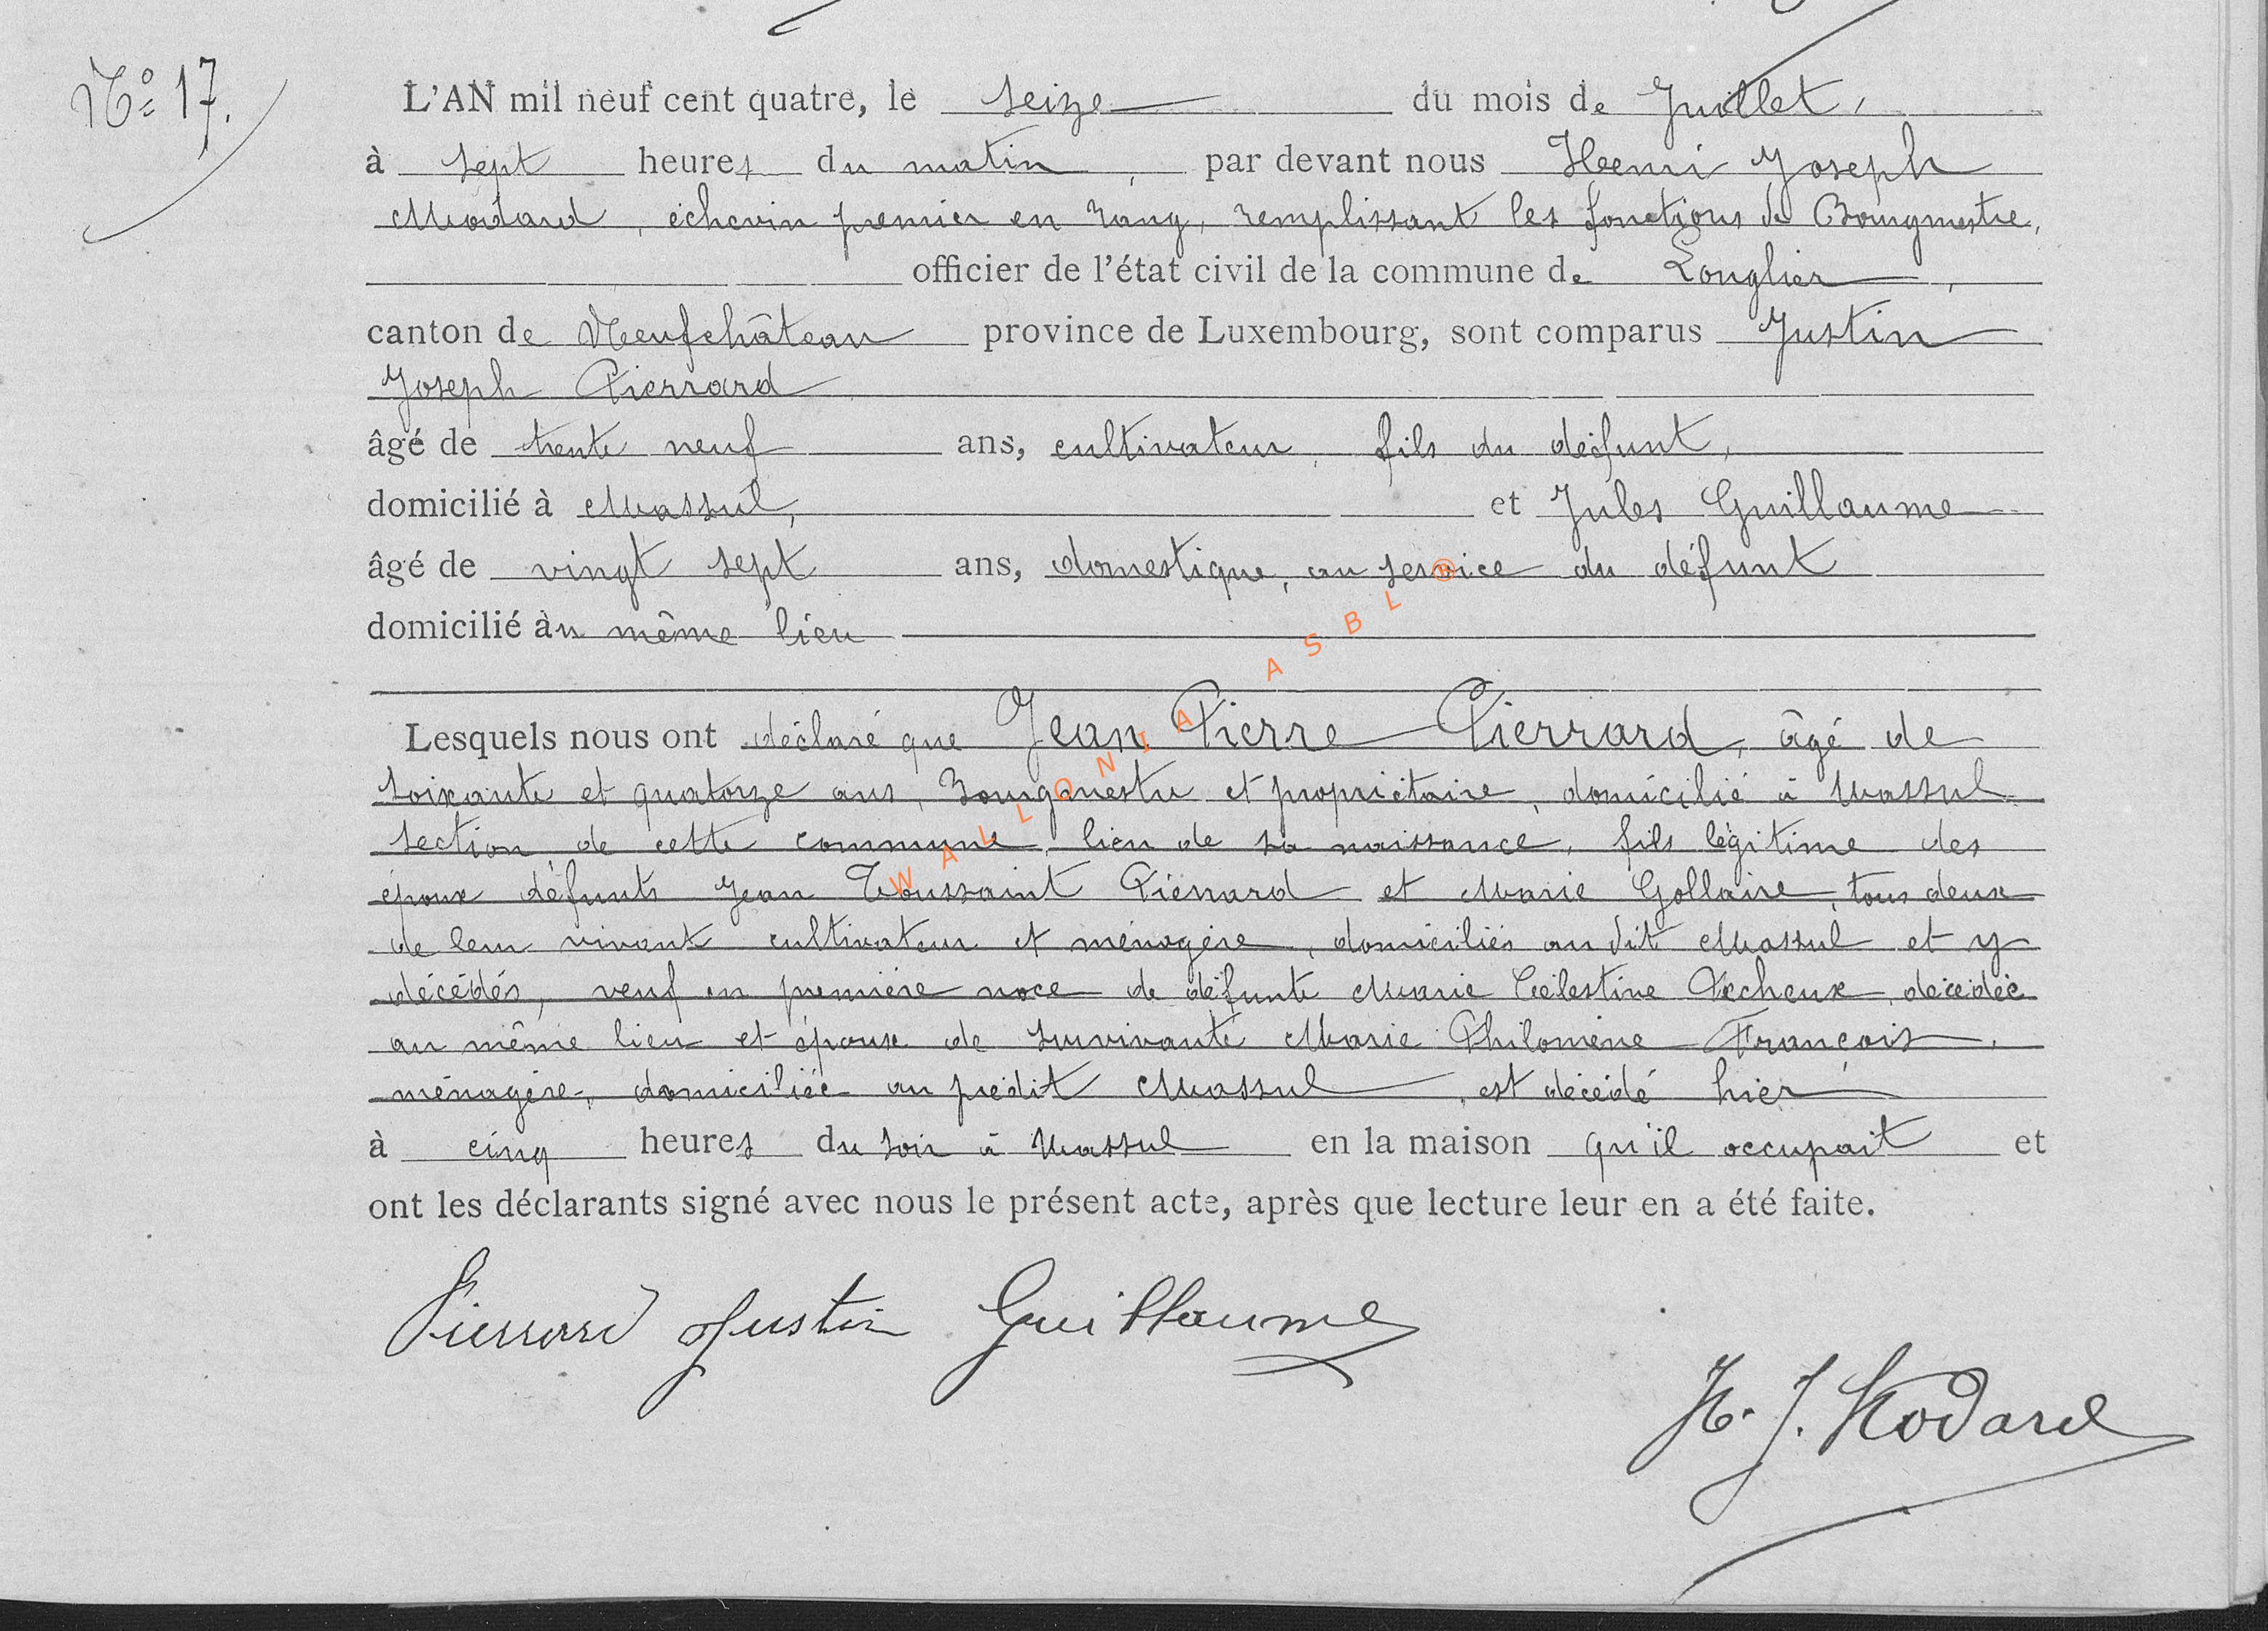 N° 17.
L'AN mil neuf cent quatre, le seize du mois de Juillet,
à sept heures du matin, par devant nous Henri Joseph
Modard, échevin premier en rang, remplissant les fonctions de Bourgmestre,
officier de l'état civil de la commune de Longlier,
canton de Neufchâteau province de Luxembourg, sont comparus Justin
Joseph Pierrard
âgé de trente neuf ans, cultivateur, fils du défunt,
domicilié à Massul, et Jules Guillaume
âgé de vingt sept ans, domestique, au service du défunt
domicilié au même lieu
Lesquels nous ont déclaré que Jean Pierre Pierrard, âgé de
soixante et quatorze ans, Bourgmestre et propriétaire, domicilié à Massul
section de cette commune, lieu de sa naissance, fils légitime des
époux défunts Jean Toussaint Pierrard et Marie Gollaire, tous deux
de leur vivant cultivateur et ménagère, domiciliés au dit Massul et y
décédés, veuf en première noce de défunte Marie Célestine Pecheux, décédée
au même lieu et époux de survivante Marie Philomène François,
ménagère, domiciliée au prédit Massul, est décédé hier
à cinq heures du soir à Massul en la maison qu'il occupait et
ont les déclarants signé avec nous le présent acte, après que lecture leur en a été faite.
Pierrard Justin Guillaume
H. J. Modard
WALLONIA ASBL ®